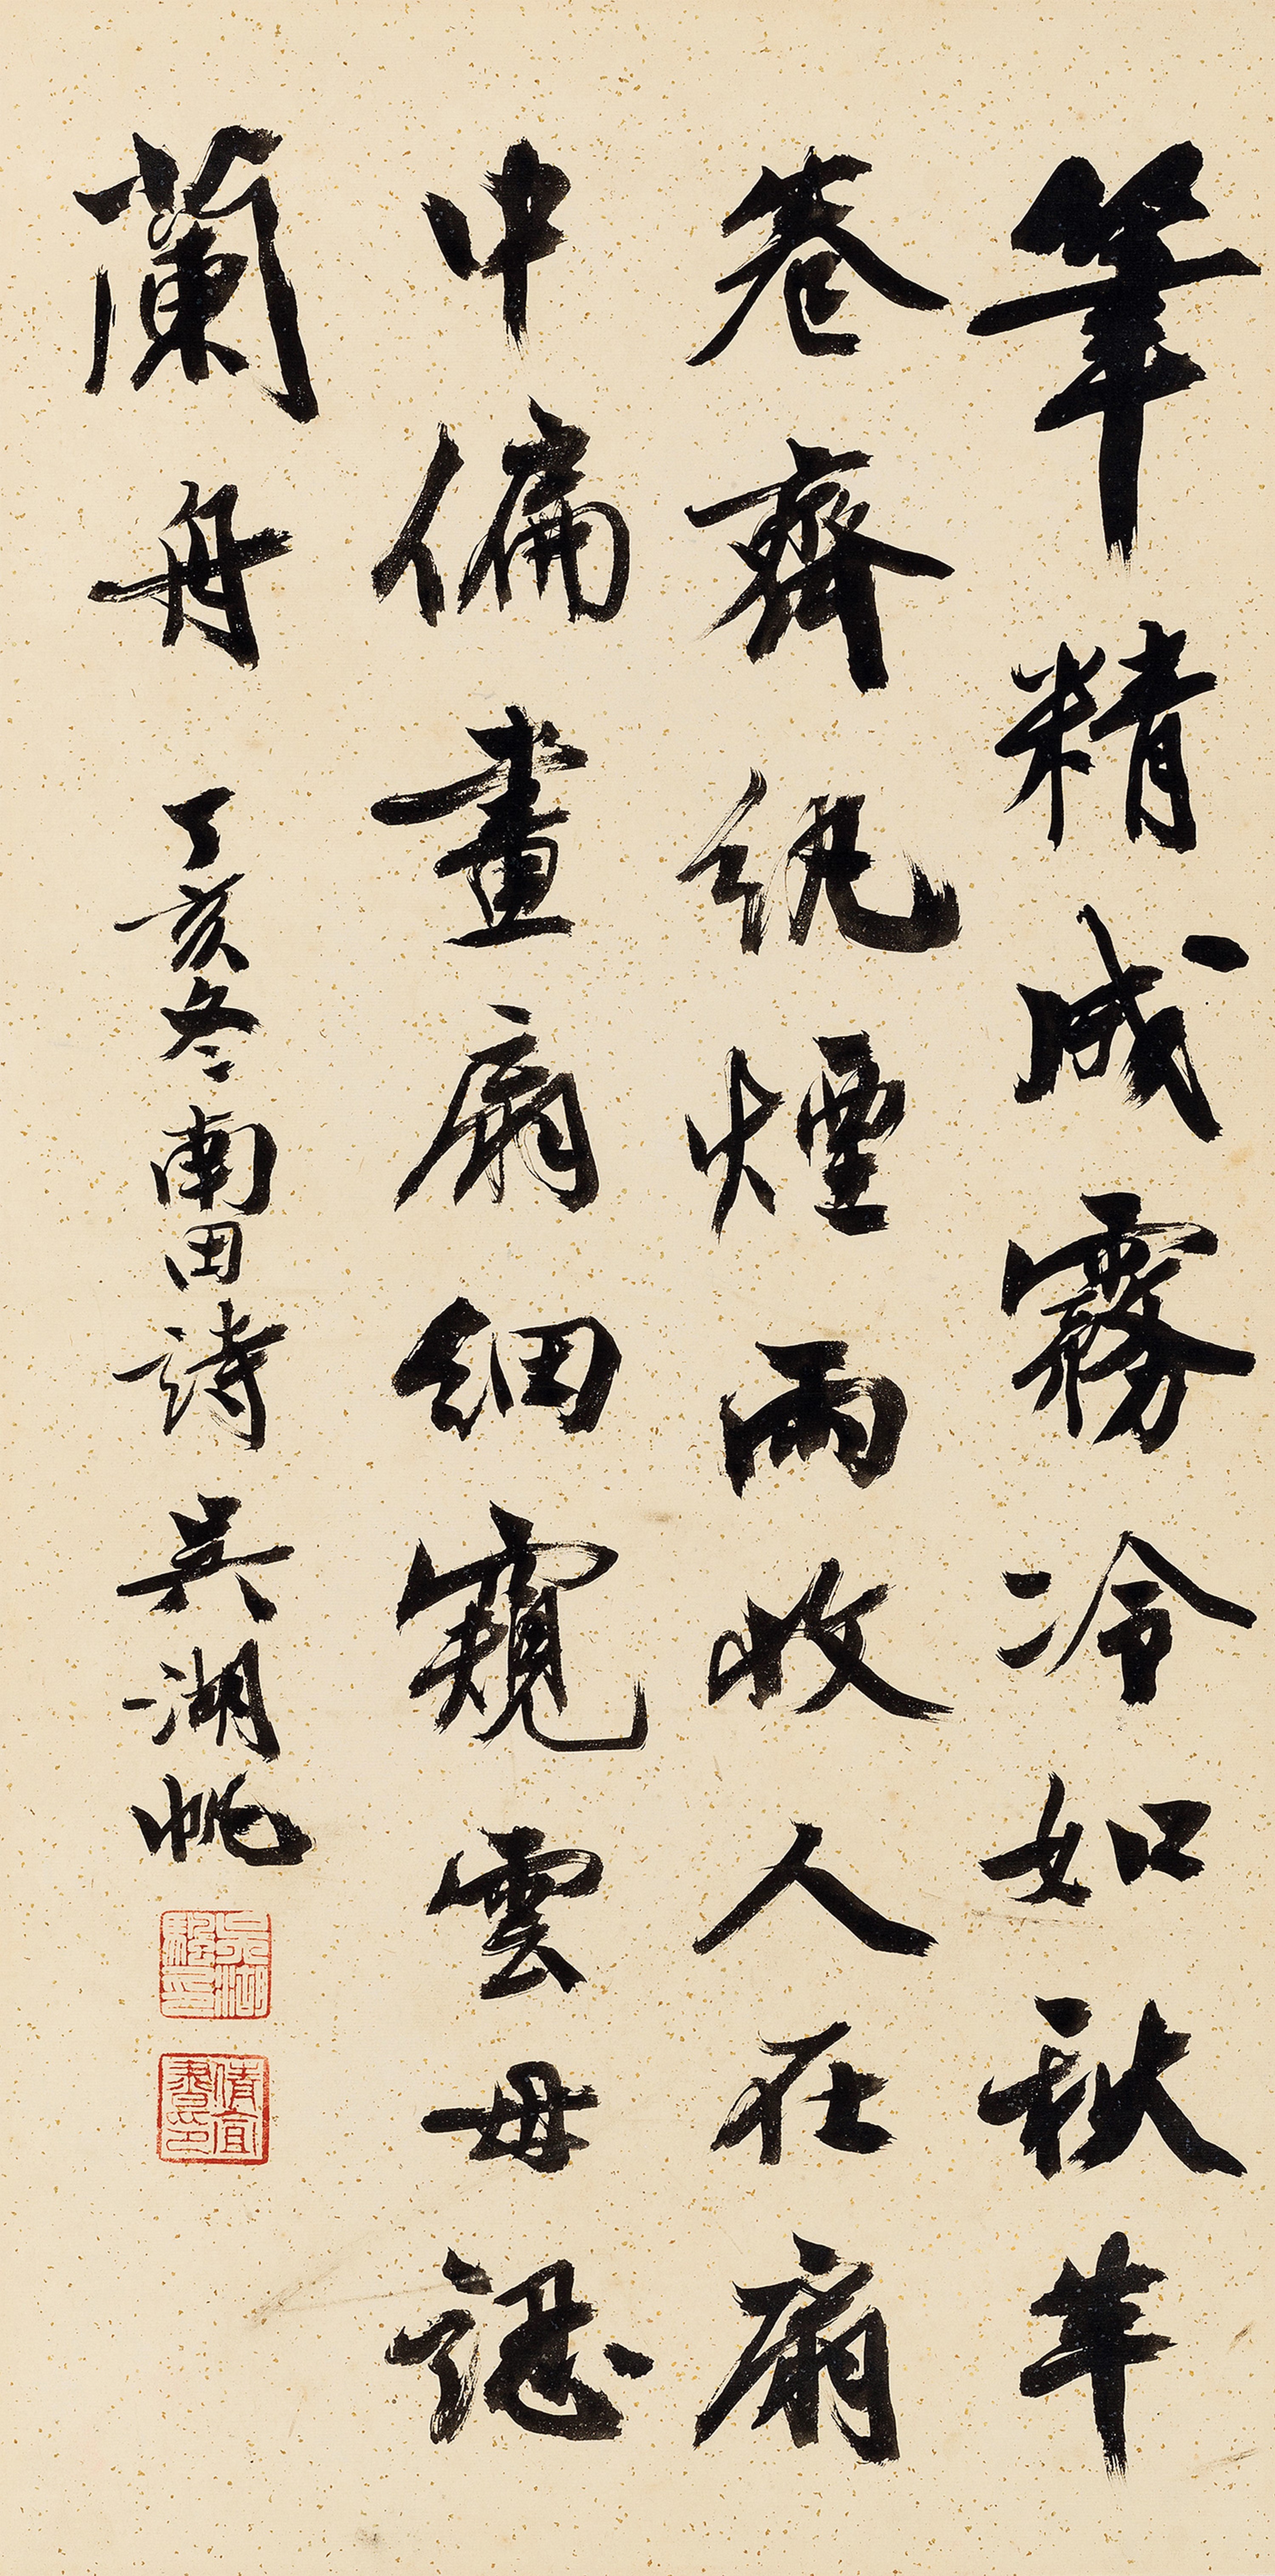 筆精成霧冷如秋半
卷齊紈煙雨收人在扇
中偏畫扇細窺雲母認
蘭舟 丁亥冬南田詩 吳湖帆
吳湖颿印